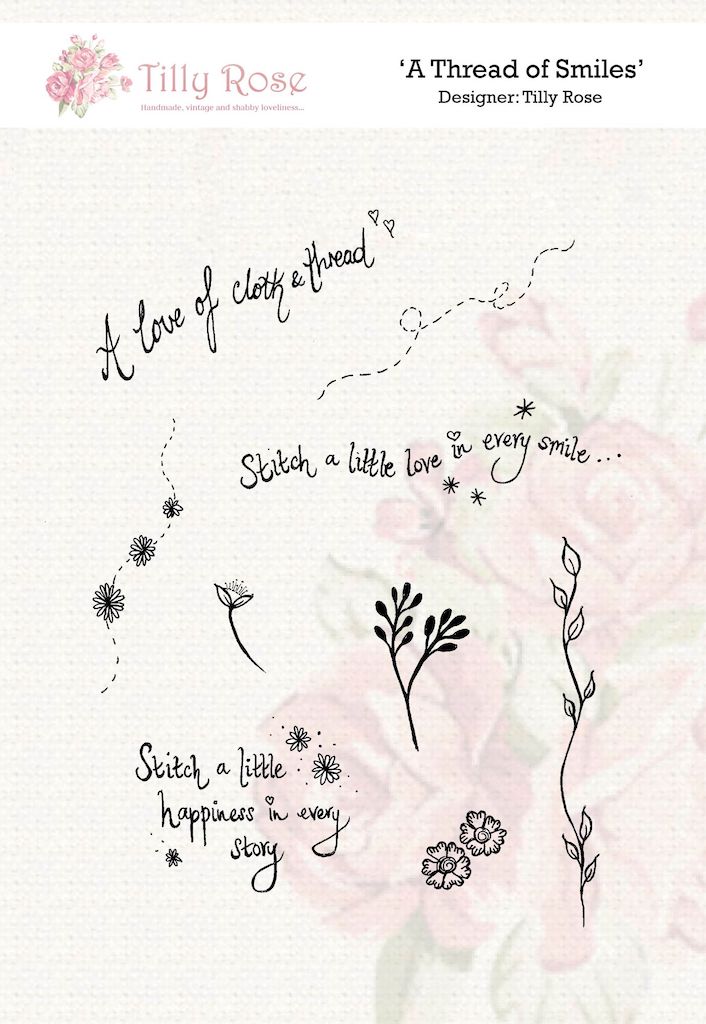 Tilly Rose
Handmade, vintage and shabby loveliness...
‘A Thread of Smiles’
Designer: Tilly Rose
A love of cloth & thread
Stitch a little love in every smile...
Stitch a little
happiness in every
story